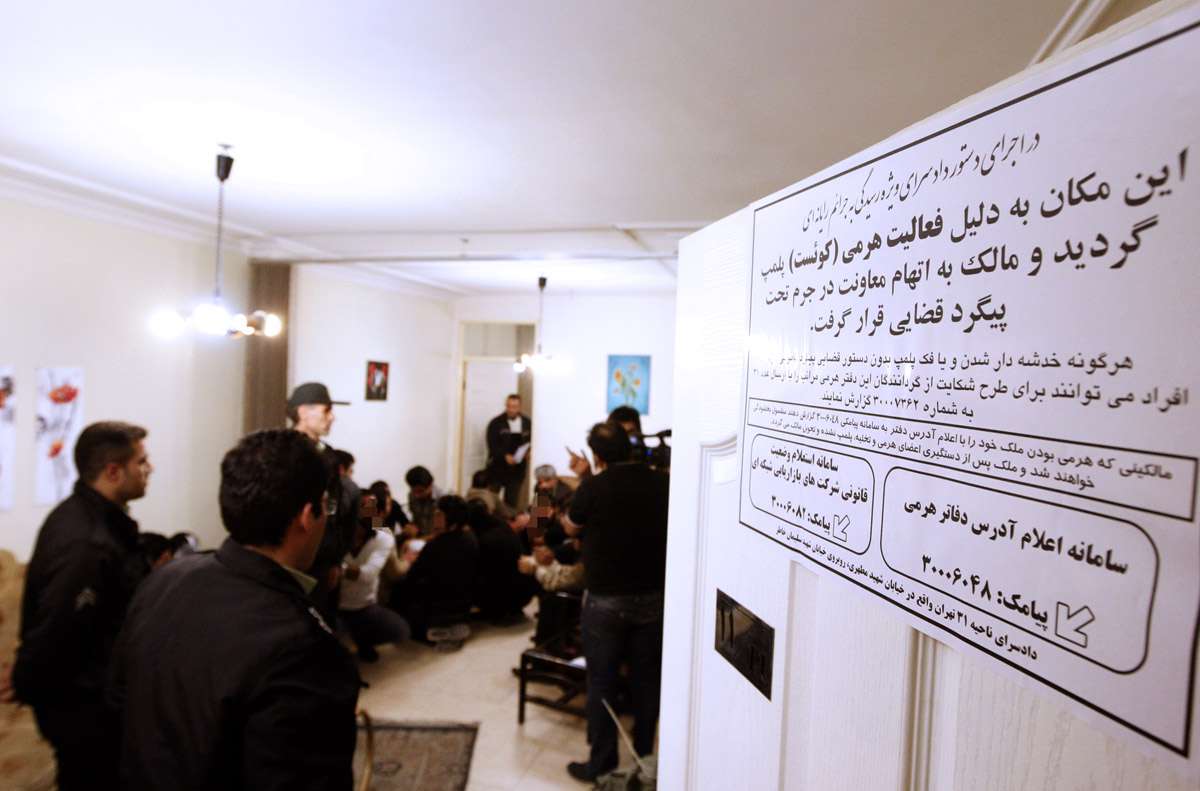 در اجرای دستور دادسرای ویژه رسیدگی به جرائم رایانه ای
این مکان به دلیل فعالیت هرمی (کوئست) پلمپ
گردید و مالک به اتهام معاونت در جرم تحت
پیگرد قضایی قرار گرفت.
هرگونه خدشه دار شدن و یا فک پلمپ بدون دستور قضایی
افراد می توانند برای طرح شکایت از گردانندگان این دفتر هرمی مراتب را با ارسال عدد ۳۱
به شماره ۳۰۰۰۷۳۶۲ گزارش نمایند.
مالکینی که هرمی بودن ملک خود را با اعلام آدرس دفتر به سامانه پیامکی ۳۰۰۰۶۰۴۸ گزارش دهند مشمول
خواهند شد و ملک پس از دستگیری اعضای هرمی و تخلیه، پلمپ نشده و تحویل مالک می گردد.
سامانه اعلام آدرس دفاتر هرمی
پیامک: ۳۰۰۰۶۰۴۸
سامانه استعلام وضعیت
قانونی شرکت های بازاریابی شبکه ای
پیامک: ۳۰۰۰۶۰۸۲
دادسرای ناحیه ۳۱ تهران واقع در خیابان شهید مطهری، روبروی خیابان شهید سلیمان خاطر